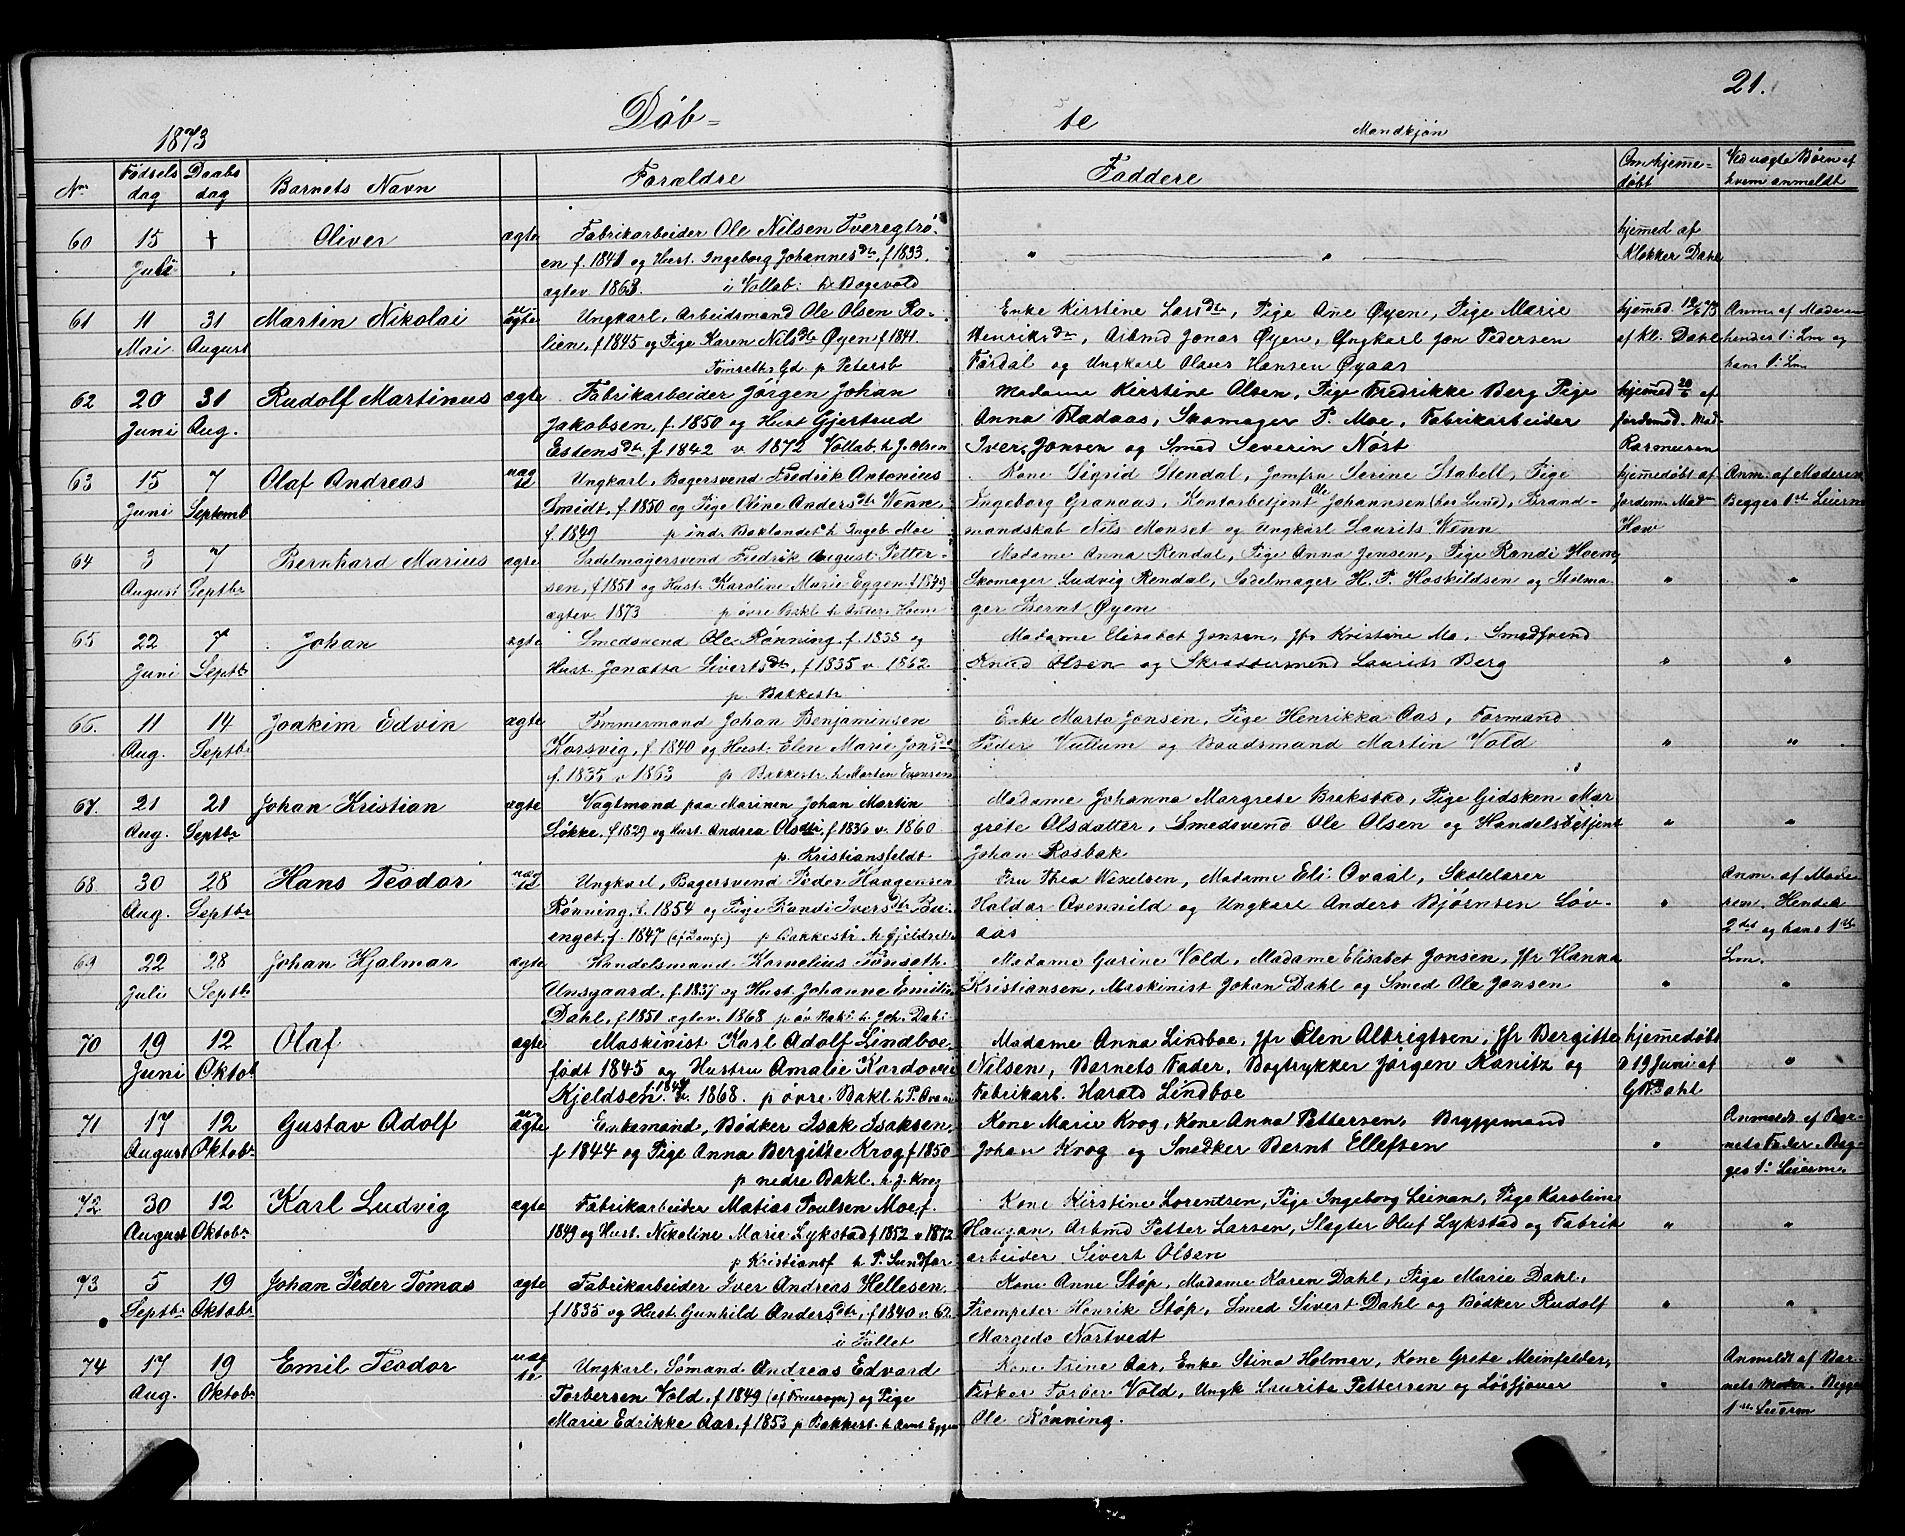 21.
Döb= te
1873 Mandkjøn
Nr Fødsels dag Daabs dag Barnets Navn Forældre Faddere Om hjemme= døbt Ved uægte Børn af hvem anmeldt
60 15 Juli † Oliver ægte
Fabrikarbeider Ole Nilsen Tveregtrø=
en f. 1841 og Hust. Ingeborg Johannesdtr, f 1833.
ægtev. 1863. i Vollab: h. Bogevold
" "
hjemmed af
Klokker Dahl
61 11 Mai 31 August Martin Nikolai uægte
Ungkarl, Arbeidsmand Ole Olsen Ro=
lien, f 1845 og Pige Karen Nilsdtr Øyen f 1841.
p Petersb
Enke Kirstine Larsdtr, Pige Ane Øyen, Pige Marie
Henriksdtr, Arbmd Jonas Øyen, Ungkarl Jon Pedersen
Fordal og Ungkarl Olaus Hansen Øyaas
hjemmed
af Kl. Dahl
Anm. af Moderen
hendes 1: Lm og
hans 1: Lm
62 20 Juni 31 Aug. Rudolf Martinus ægte
Fabrikarbeider Jørgen Johan
Jakobsen, f. 1850 og Hust Gjertrud
Estensdtr, f 1842 v 1872 Vollab. h J. Olsen
Madame Kirstine Olsen, Pige Fredrikke Berg Pige
Anna Fladaas, Skomager P. Moe, Fabrikarbeider
Iver Jonsen og Smed Severin Nöst
hjemmed 20/6 af
Jordemod. Mad.
Rasmussen
63 15 Juni 7 Septemb Olaf Andreas uægte
Ungkarl, Bagersvend Fredrik Antonius
Smidt, f. 1850 og Pige Oline Andersdtr Wenn,
f. 1849 p ind. Baklandet h Ingeb. Moe
Kone Sigrid Stendal, Jomfru Serine Stabell, Pige
Ingeborg Granaas, Kontorbetjent Ole Johannsen (hos Lund), Brand=
mandskab Nils Monset og Ungkarl Laurits Wenn
hjemmedøbt af
Jordem. Mdm
Hov
Anm. af Moderen
Begges 1ste Leierm
64 3 August 7 Septbr Bernhard Marius ægte
Sadelmagersvend Fredrik August Petter=
sen, f 1851 og Hust. Karoline Marie Eggen f 1849
ægtev. 1873 p øvre Bakl h Anders Hoem
Madame Anna Rendal, Pige Anna Jonsen, Pige Randi Hoem,
Skomager Ludvig Rendal, Sadelmager H. P. Hoskildsen og Stolma=
ger Bernt Øyen
" "
65 22 Juni 7 Septbr Johan ægte
Smedsvend Ole Rönning f. 1838 og
Hust. Jonetta Sivertsdtr, f 1835 v 1862.
p. Bakkestr
Madame Elisabet Jonsen, Jfr Kristine Mo, Smedsvend
Knud Olsen og Skræddersvend Laurits Berg
" "
66. 11 Aug. 14 Septbr Joakim Edvin ægte
Tømmermand Johan Benjaminsen
Korsvig, f. 1840 og Hust. Elen Marie Jonsdtr
f. 1835 v 1863 p Bakkestr. h Morten Evensen
Enke Marta Jonsen, Pige Henrikka Aas, Formand
Peder Vullum og Baadsmand Martin Vold
" "
67. 21 Aug. 21 Septbr Johan Kristian ægte
Vagtmand paa Marinen Johan Martin
Løkke, f 1829 og Hust. Andrea Olsdtr, f 1836 v. 1860
p. Kristiansfeldt
Madame Johanna Margrete Brakstad, Pige Gidsken Mar
grete Olsdatter, Smedsvend Ole Olsen og Handelsbetjent
Johan Rosbak
" "
68 30 Aug. 28 Septbr Hans Teodor uægte
Ungkarl, Bagersvend Peder Haagensen
Rønning, f. 1854 og Pige Randi Iversdtr Bu=
enget, f. 1847 p Bakkestr
Fru Thea Wexelsen, Madame Eli Ovaal, Skolelærer
Haldor Avenvild og Ungkarl Anders Bjørnsen Løv=
aas
"
Anm. af Mode
ren. Hendes
2det og hans 1ste
Lm.
69 22 Juli 28 Septbr Johan Hjalmar ægte
Handelsmand Kornelius Tønseth
Unsgaard, f. 1837 og Hust. Johanne Emilie
Dahl, f 1851 ægtev. 1868 p øv. Bakl h. Joh. Dahl
Madame Gurine Vold, Madame Elisabet Jonsen, Jfr Hanna
Kristiansen, Maskinist Johan Dahl og Smed Ole Jonsen
" "
70 19 Juni 12 Oktob Olaf ægte
Maskinist Karl Adolf Lindboe,
født 1845 og Hustru Amalie Kordovie
Kjeldsen v. 1868. p øvre Bakl
Madame Anna Lindboe, Jfr Elen Albrigtsen, Jfr Bergitte
Nilsen, Barnets Fader, Bogtrykker Jørgen Kanitz og
Fabrikarb. Harald Lindboe
hjemmedøbt
d 19 Juni af
Dahl
"
71 17 August 12 Oktobr Gustav Adolf uægte
Enkemand, Bødker Isak Isaksen,
f 1844 og Pige Anna Bergitte Krog f 1850
p nedre Bakl. h. J. Krog
Kone Marie Krog, Kone Anna Pettersen, Bryggemand
Johan Krog og Snedker Bernt Ellefsen
"
Anmeldt af Bar=
nets Fader. Beg=
ges 1: Leierm.
72 30 August 12 Oktobr Karl Ludvig ægte
Fabrikarbeider Matias Poulsen Moe f.
1849 og Hust. Nikoline Marie Lykstad f 1852 v 1872
p Kristiansf h P. Sundfær
Kone Kirstine Lorentsen, Pige Ingeborg Leinan, Pige Karoline
Haugan, Arbmd Petter Larsen, Slagter Oluf Lykstad og Fabrik
arbeider Sivert Olsen
" "
73 5 Septbr 19 Oktobr Johan Peder Tomas ægte
Fabrikarbeider Iver Andreas Hellesen,
f 1835 og Hust Gunhild Andersdtr, f 1840 v. 62.
i Fallet
Kone Anne Støp, Madame Karen Dahl, Pige Marie Dahl,
Trompeter Henrik Støp, Smed Sivert Dahl og Bødker Rudolf
Margido Nortvedt
" "
74 17 Aug. 19 Oktobr Emil Teodor uægte
Ungkarl, Sømand Andreas Edvard
Torbersen Vold, f 1849 og Pige
Marie Edrikke Aas, f 1853 p Bakkest. h Arnt Eggen
Kone Trine Aas, Enke Stina Holmer, Kone Grete Meinfelder,
Fisker Torber Vold, Ungk Laurits Pettersen og Løsfjøver
Ole Rønning.
"
Anmeldt af Bar=
nets Moder. Begges
1ste Leierm